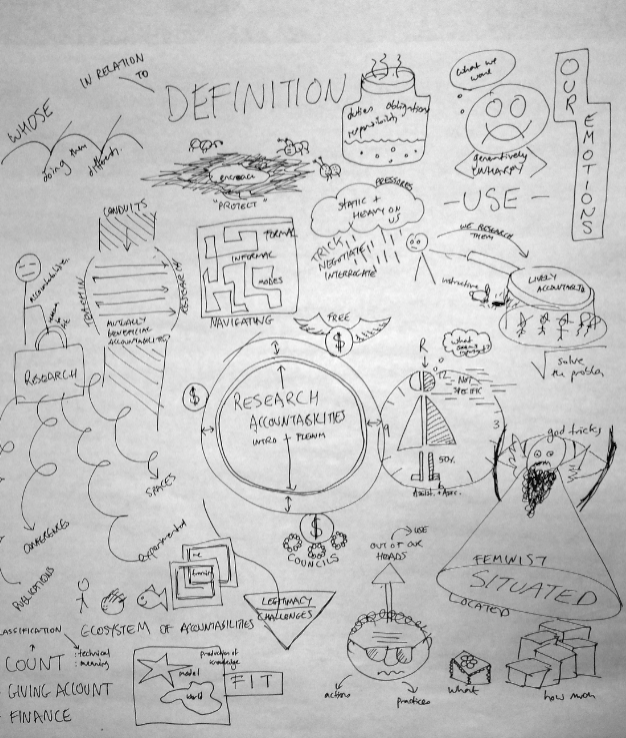 WHOSE
IN RELATION
TO
DEFINITION
doing them
different.
duties obligations
responsibility
what we
want
generatively
UNHAPPY
OUR
EMOTIONS
- USE -
encroach
"PROTECT"
PRESSURES
STATIC +
HEAVY ON
US
TRICK
NEGOTIATE
INTERROGATE
WE RESEARCH
THEM
LIVELY
ACCOUNTABILITY
instructive
solve
the problem
CONDUITS
RESEARCH
MUTUALLY
BENEFICIAL
ACCOUNTABILITIES
FORMAL
INFORMAL
MODES
NAVIGATING
FREE
$
$
RESEARCH
ACCOUNTABILITIES
INTRO + PLENUM
$
COUNCILS
R
12
NOT
SPECIFIC
3
9
50%
god tricks
FEMINIST
SITUATED
LOCATED
accountabilities
RESEARCH
SPACES
CONFERENCES
PUBLICATIONS
Departmental
me
LEGITIMACY
CHALLENGES
ECOSYSTEM OF ACCOUNTABILITIES
USE
OUT OF OUR
HEADS
actions
practices
CLASSIFICATION
technical
meaning
COUNT
- GIVING ACCOUNT
- FINANCE
production of
knowledge
model
world
FIT
what
how much